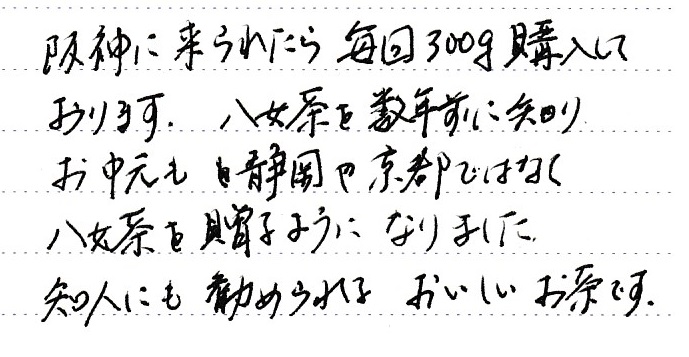 阪神に来られたら毎回300g購入して
おります。八女茶を数年前に知り
お中元も静岡や京都ではなく
八女茶を贈るようになりました。
知人にも勧められる おいしいお茶です。